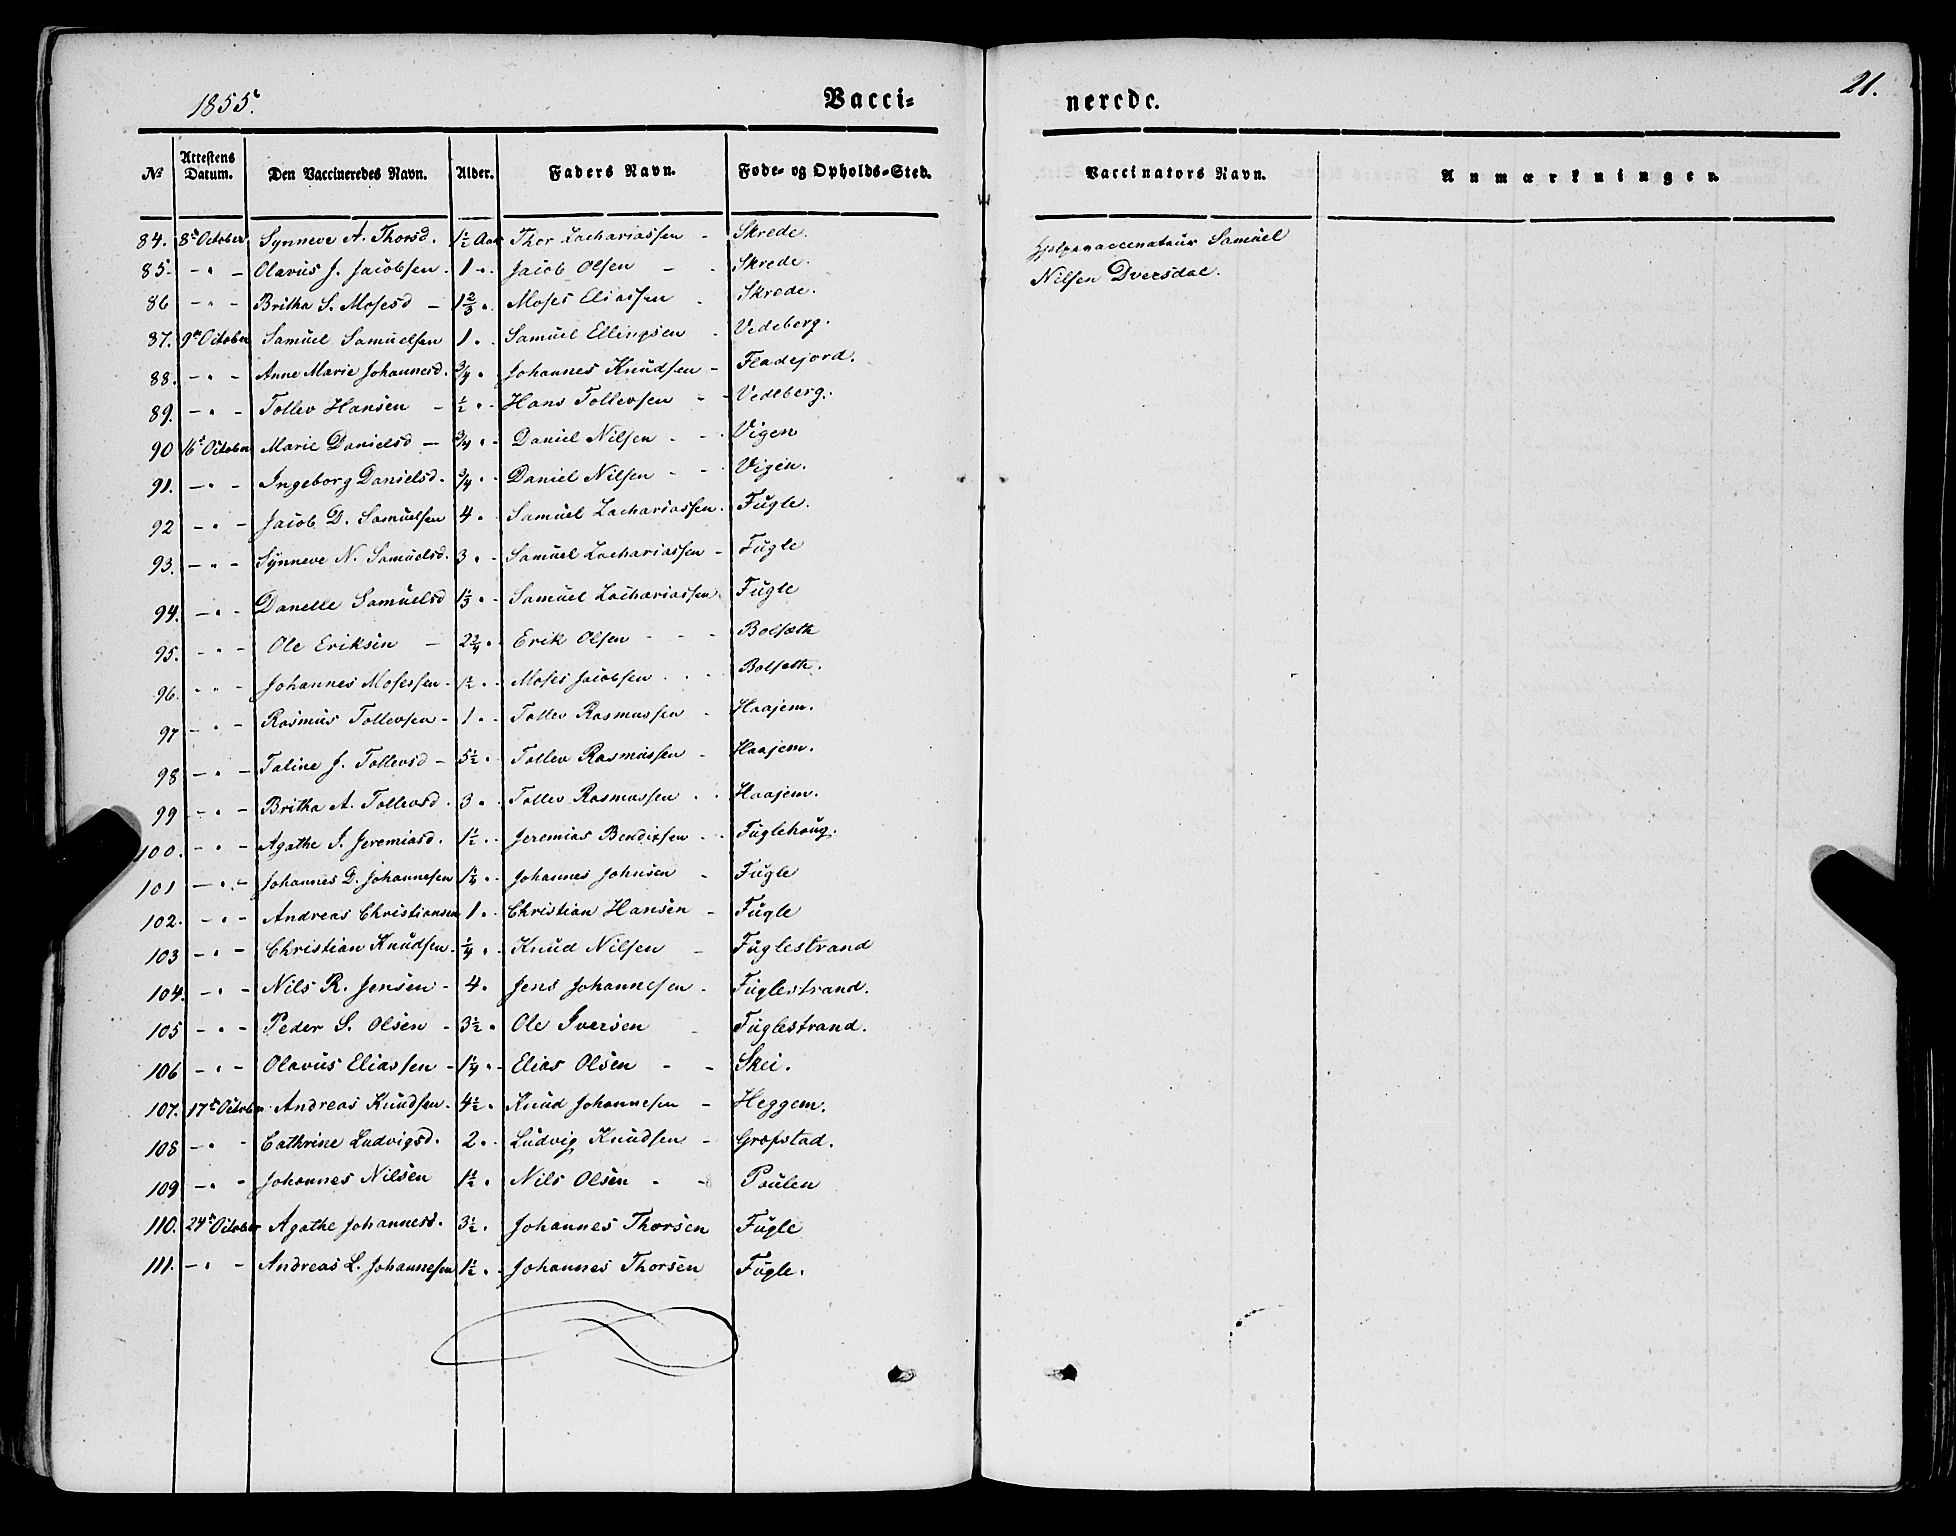 1855.
Vacci-
nerede.
21.
No Attestens Datum. Den Vaccineredes Navn. Alder. Faders Navn. Føde- og Opholds-Sted. Vaccinators Navn. Anmærkninger.
84. 8de October Synneve A. Thorsd. 1½ Aar Thor Zachariassen - Skrede. Hjelpevaccinateur Samuel
85. - " - Olavus J. Jacobsen. 1 ". Jacob Olsen - Skrede. Nilsen Dversdal.
86 - " - Britha S. Mosesd - 1⅔ ". Moses Eliassen - Skrede.
87. 9de October Samuel Samuelsen 1 ". Samuel Ellingsen - Vedeberg.
88. - " - Anne Marie Johannesd. ¾ " Johannes Knudsen - Fladejord.
89. - " - Tollev Hansen - ½ " - Hans Tollevsen - - Vedeberg.
90 16de October Marie Danielsd - ¾ " - Daniel Nilsen - - Vigen
91. - " - Ingeborg Danielsd. ¾ " - Daniel Nilsen - - Vigen.
92 - " - Jacob D. Samuelsen 4 " Samuel Zachariassen. Fugle.
93. - " - Synneve N. Samuelsd. 3 " - Samuel Zachariassen - Fugle
94. - " - Danelle Samuelsd 1⅓ " - Samuel Zachariassen Fugle
95. - " - Ole Eriksen - 2¾ " - Erik Olsen - - - Bolseth
96. " " - Johannes Mosessen - 1½ " - Moses Jacobsen . . . Bolseth.
97 - " - Rasmus Tollevsen - 1 " - Tollev Rasmussen - Haajem.
98 - " - Taline J. Tollevsd - 5½ " Tollev Rasmussen - Haajem.
99 - " - Britha A. Tollevsd. 3 " Tollev Rasmussen . . Haajem.
100. - " - Agathe S. Jeremiasd. 1½ " - Jeremias Bendixsen - . Fuglehoug.
101 - " - Johannes D. Johannesen 1¼ " - Johannes Johnsen - Fugle
102. - " - Andreas Christiansen 1 " Christian Hansen - Fugle
103 - " - Christian Knudsen. ¼ " Knud Nilsen - Fuglestrand
104. - " - Nils R. Jensen - 4 " Jens Johannesen - Fuglestrand.
105 - " - Peder S. Olsen - 3½ " Ole Iversen - Fuglestrand.
106 - " - Olavus Eliassen - 1¼ " - Elias Olsen - - Skei.
107. 17de October Andreas Knudsen. 4½ " Knud Johannesen - Heggem.
108 - " - Cathrine Ludvigsd. 2 " - Ludvig Knudsen - Grofstad.
109 - " - Johannes Nilsen 1½ " Nils Olsen - - Paulen
110. 24de October Agathe Johannesd. 3½ " Johannes Thorsen Fugle
111. - " - Andreas L. Johannesen 1½ " - Johannes Thorsen Fugle.